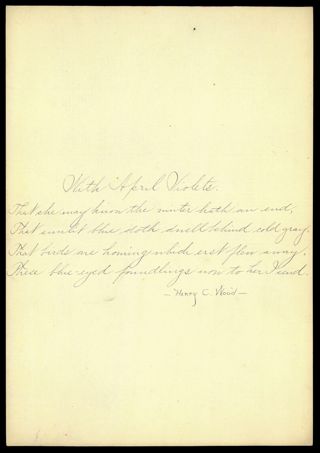 With April Violets.
That she may know the winter hath an end,
That sunlit blue doth dwell behind cold gray,
That birds are homing which erst flew away,
These blue eyed foundlings now to her I send.
— Henry C. Wood —